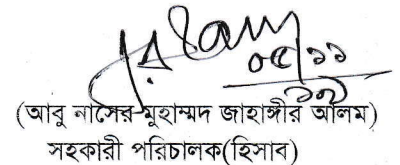 ০৫/১১
১৩
(আবু নাসের মুহাম্মদ জাহাঙ্গীর আলম)
সহকারী পরিচালক(হিসাব)